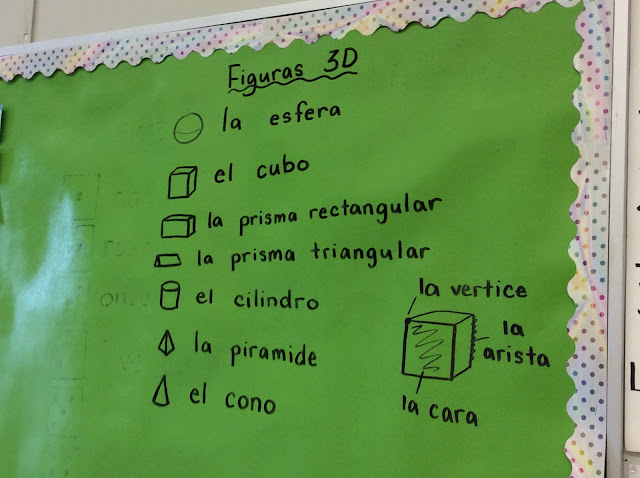 Figuras 3D
la esfera
el cubo
la prisma rectangular
la prisma triangular
el cilindro
la piramide
el cono
la vertice
la
arista
la cara